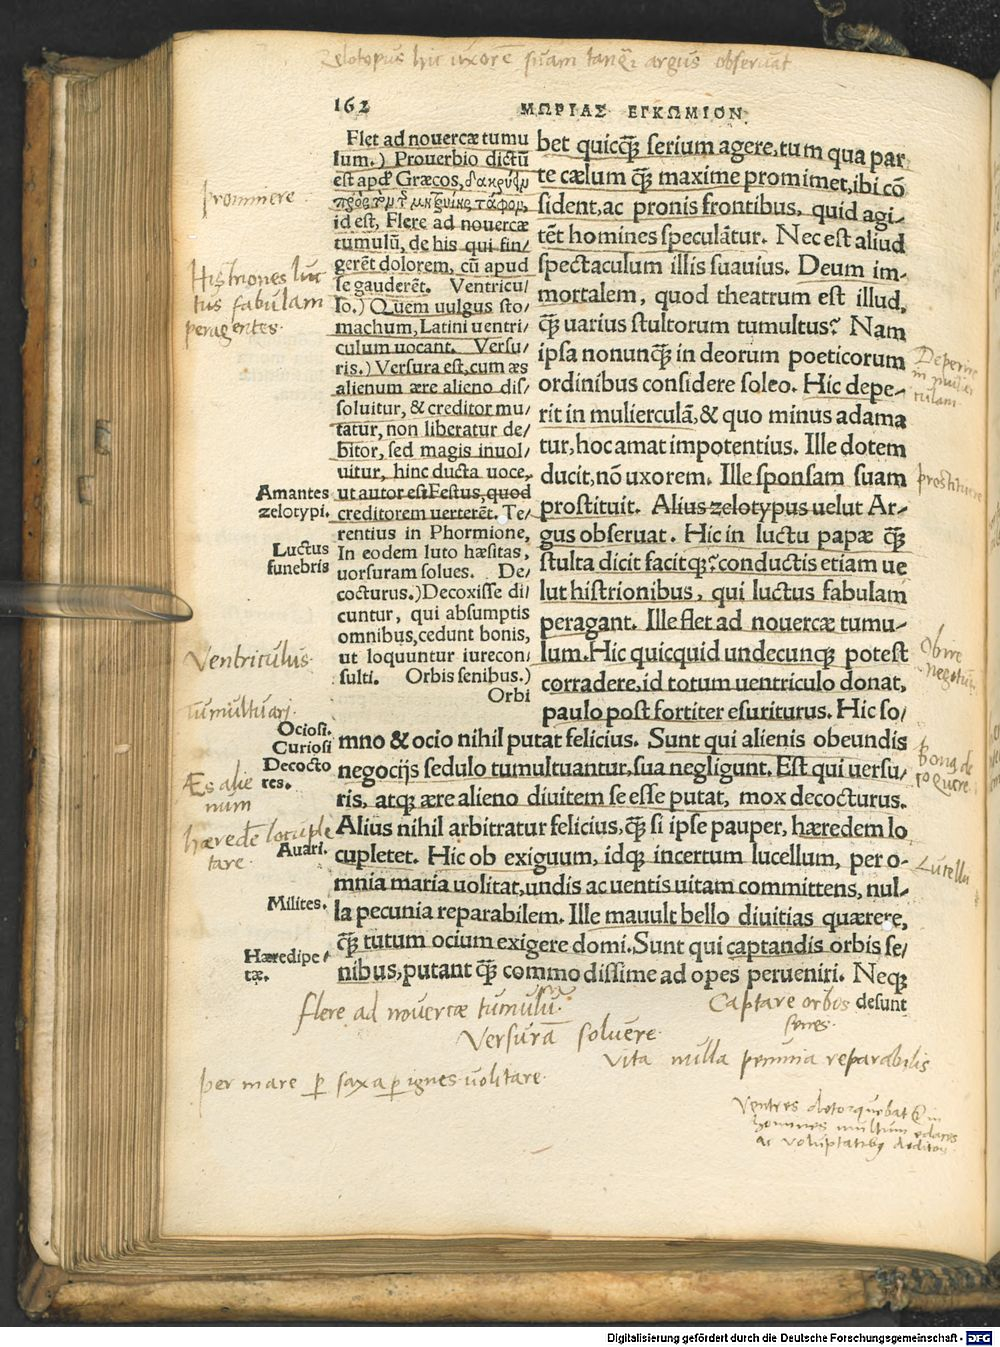 Zelotopus hic uxorē suam tanq̃ argus observat
162
ΜΩΡΙΑΣ ΕΓΚΩΜΙΟΝ.
Flet ad nouercæ tumu
lum.) Prouerbio dictū
est apd' Græcos,
id est, Flere ad nouercæ
tumulū, de his qui fin/
gerēt dolorem, cū apud
se gauderēt. Ventricu/
lo.) Quem uulgus sto/
machum, Latini uentri/
culum uocant. Versu/
ris.) Versura est, cum æs
alienum ære alieno dis/
soluitur, & creditor mu/
tatur, non liberatur de/
bitor, sed magis inuol/
uitur, hinc ducta uoce,
ut autor est Festus, quod
creditorem uerterēt. Te/
rentius in Phormione,
In eodem luto hæsitas,
uorsuram solues. De/
cocturus.) Decoxisse di/
cuntur, qui absumptis
omnibus, cedunt bonis,
ut loquuntur iurecon/
sulti. Orbis senibus.)
Orbi
bet quicq̃ serium agere, tum qua par
te cælum q̃ maxime promimet, ibi cō
sident, ac pronis frontibus, quid agi/
tēt homines speculātur. Nec est aliud
spectaculum illis suauius. Deum im/
mortalem, quod theatrum est illud,
q̃ uarius stultorum tumultus? Nam
ipsa nonunq̃ in deorum poeticorum
ordinibus considere soleo. Hic depe/
rit in mulierculā, & quo minus adama
tur, hoc amat impotentius. Ille dotem
ducit, nō uxorem. Ille sponsam suam
prostituit. Alius zelotypus uelut Ar/
gus obseruat. Hic in luctu papæ q̃
stulta dicit facitq;? conductis etiam ue
lut histrionibus, qui luctus fabulam
peragant. Ille flet ad nouercæ tumu/
lum. Hic quicquid undecunq; potest
corradere, id totum uentriculo donat,
paulo post fortiter esuriturus. Hic so/
mno & ocio nihil putat felicius. Sunt qui alienis obeundis
negocijs sedulo tumultuantur, sua negligunt. Est qui uersu/
ris, atq; ære alieno diuitem se esse putat, mox decocturus.
Alius nihil arbitratur felicius, q̃ si ipse pauper, hæredem lo
cupletet. Hic ob exiguum, idq; incertum lucellum, per o/
mnia maria uolitat, undis ac uentis uitam committens, nul/
la pecunia reparabilem. Ille mauult bello diuitias quærere,
q̃ tutum ocium exigere domi. Sunt qui captandis orbis se/
nibus, putant q̃ commodissime ad opes perueniri. Neq;
desunt
Amantes
zelotypi.
Luctus
funebris
Ociosi.
Curiosi
Decocto
res.
Auari.
Milites.
Hæredipe/
tæ.
prominere
Histriones luc
tus fabulam
peragentes.
Ventriculus.
tumultuari.
Æs alie
num
hæredē locuple
tare.
Deperire
in mulier
culam
prostituere
Obire
negotiū
bona de
coquere
Lucellū
flere ad nouercæ tumulū.
Captare orbos
senes.
Versuram soluere.
vita nulla pecunia reparabilis
per mare p saxa p ignes uolitare.
Ventres
homines multum
ac voluptatibq deditos
Digitalisierung gefördert durch die Deutsche Forschungsgemeinschaft - DFG